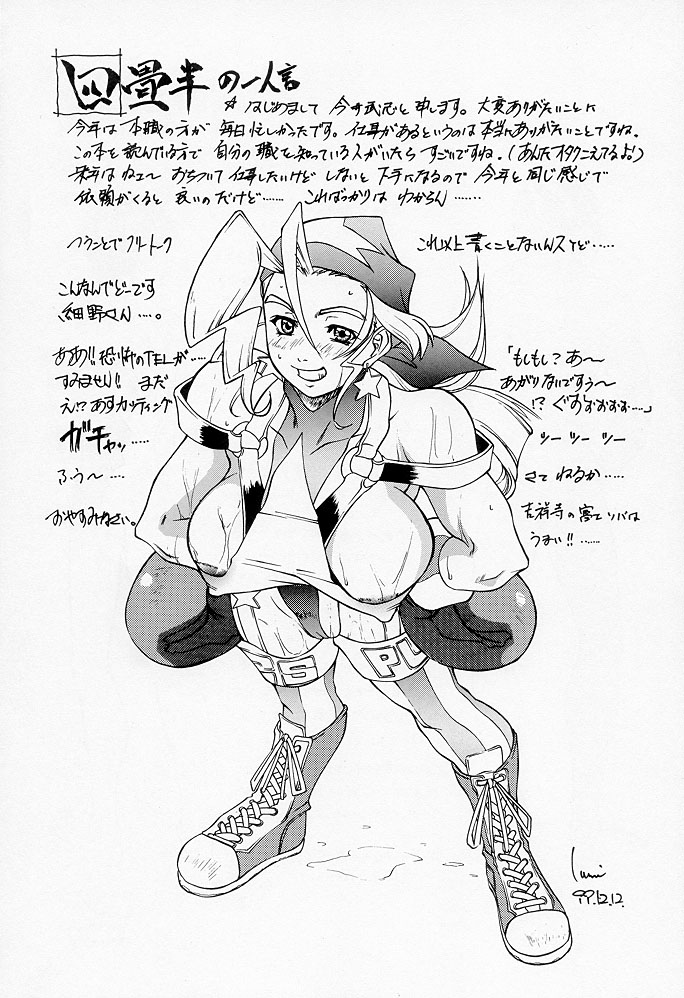 四畳半の一人言
☆はじめまして 今井武志と申します。大変ありがたいことに
今年は本職の方が毎日忙しかったです。仕事があるというのは本当にありがたいことですね。
この本を読んでいる方で自分の職を知っている人がいたらすごいですね。(あんたオタクこえてるよ!)
来年はねェ〜おちついて仕事したいけどしないと下手になるので今年と同じ感じで
依頼がくると良いのだけど……こればっかりはわからん……
つうことでフリートーク
これ以上書くことないんスけど……
こんなんでどーです
細野さん…。
ああ!!恐怖のTELが……
すみません!! まだ
え!?あすカッティング
ガチャッ……
ふう〜……
おやすみなさい。
「もしもし?あ〜
あがりないですぅ〜
!?ぐずおおおお…」
ツー ツー ツー
さてねるか……
吉祥寺の ソバは
うまい!!……
99.12.12.